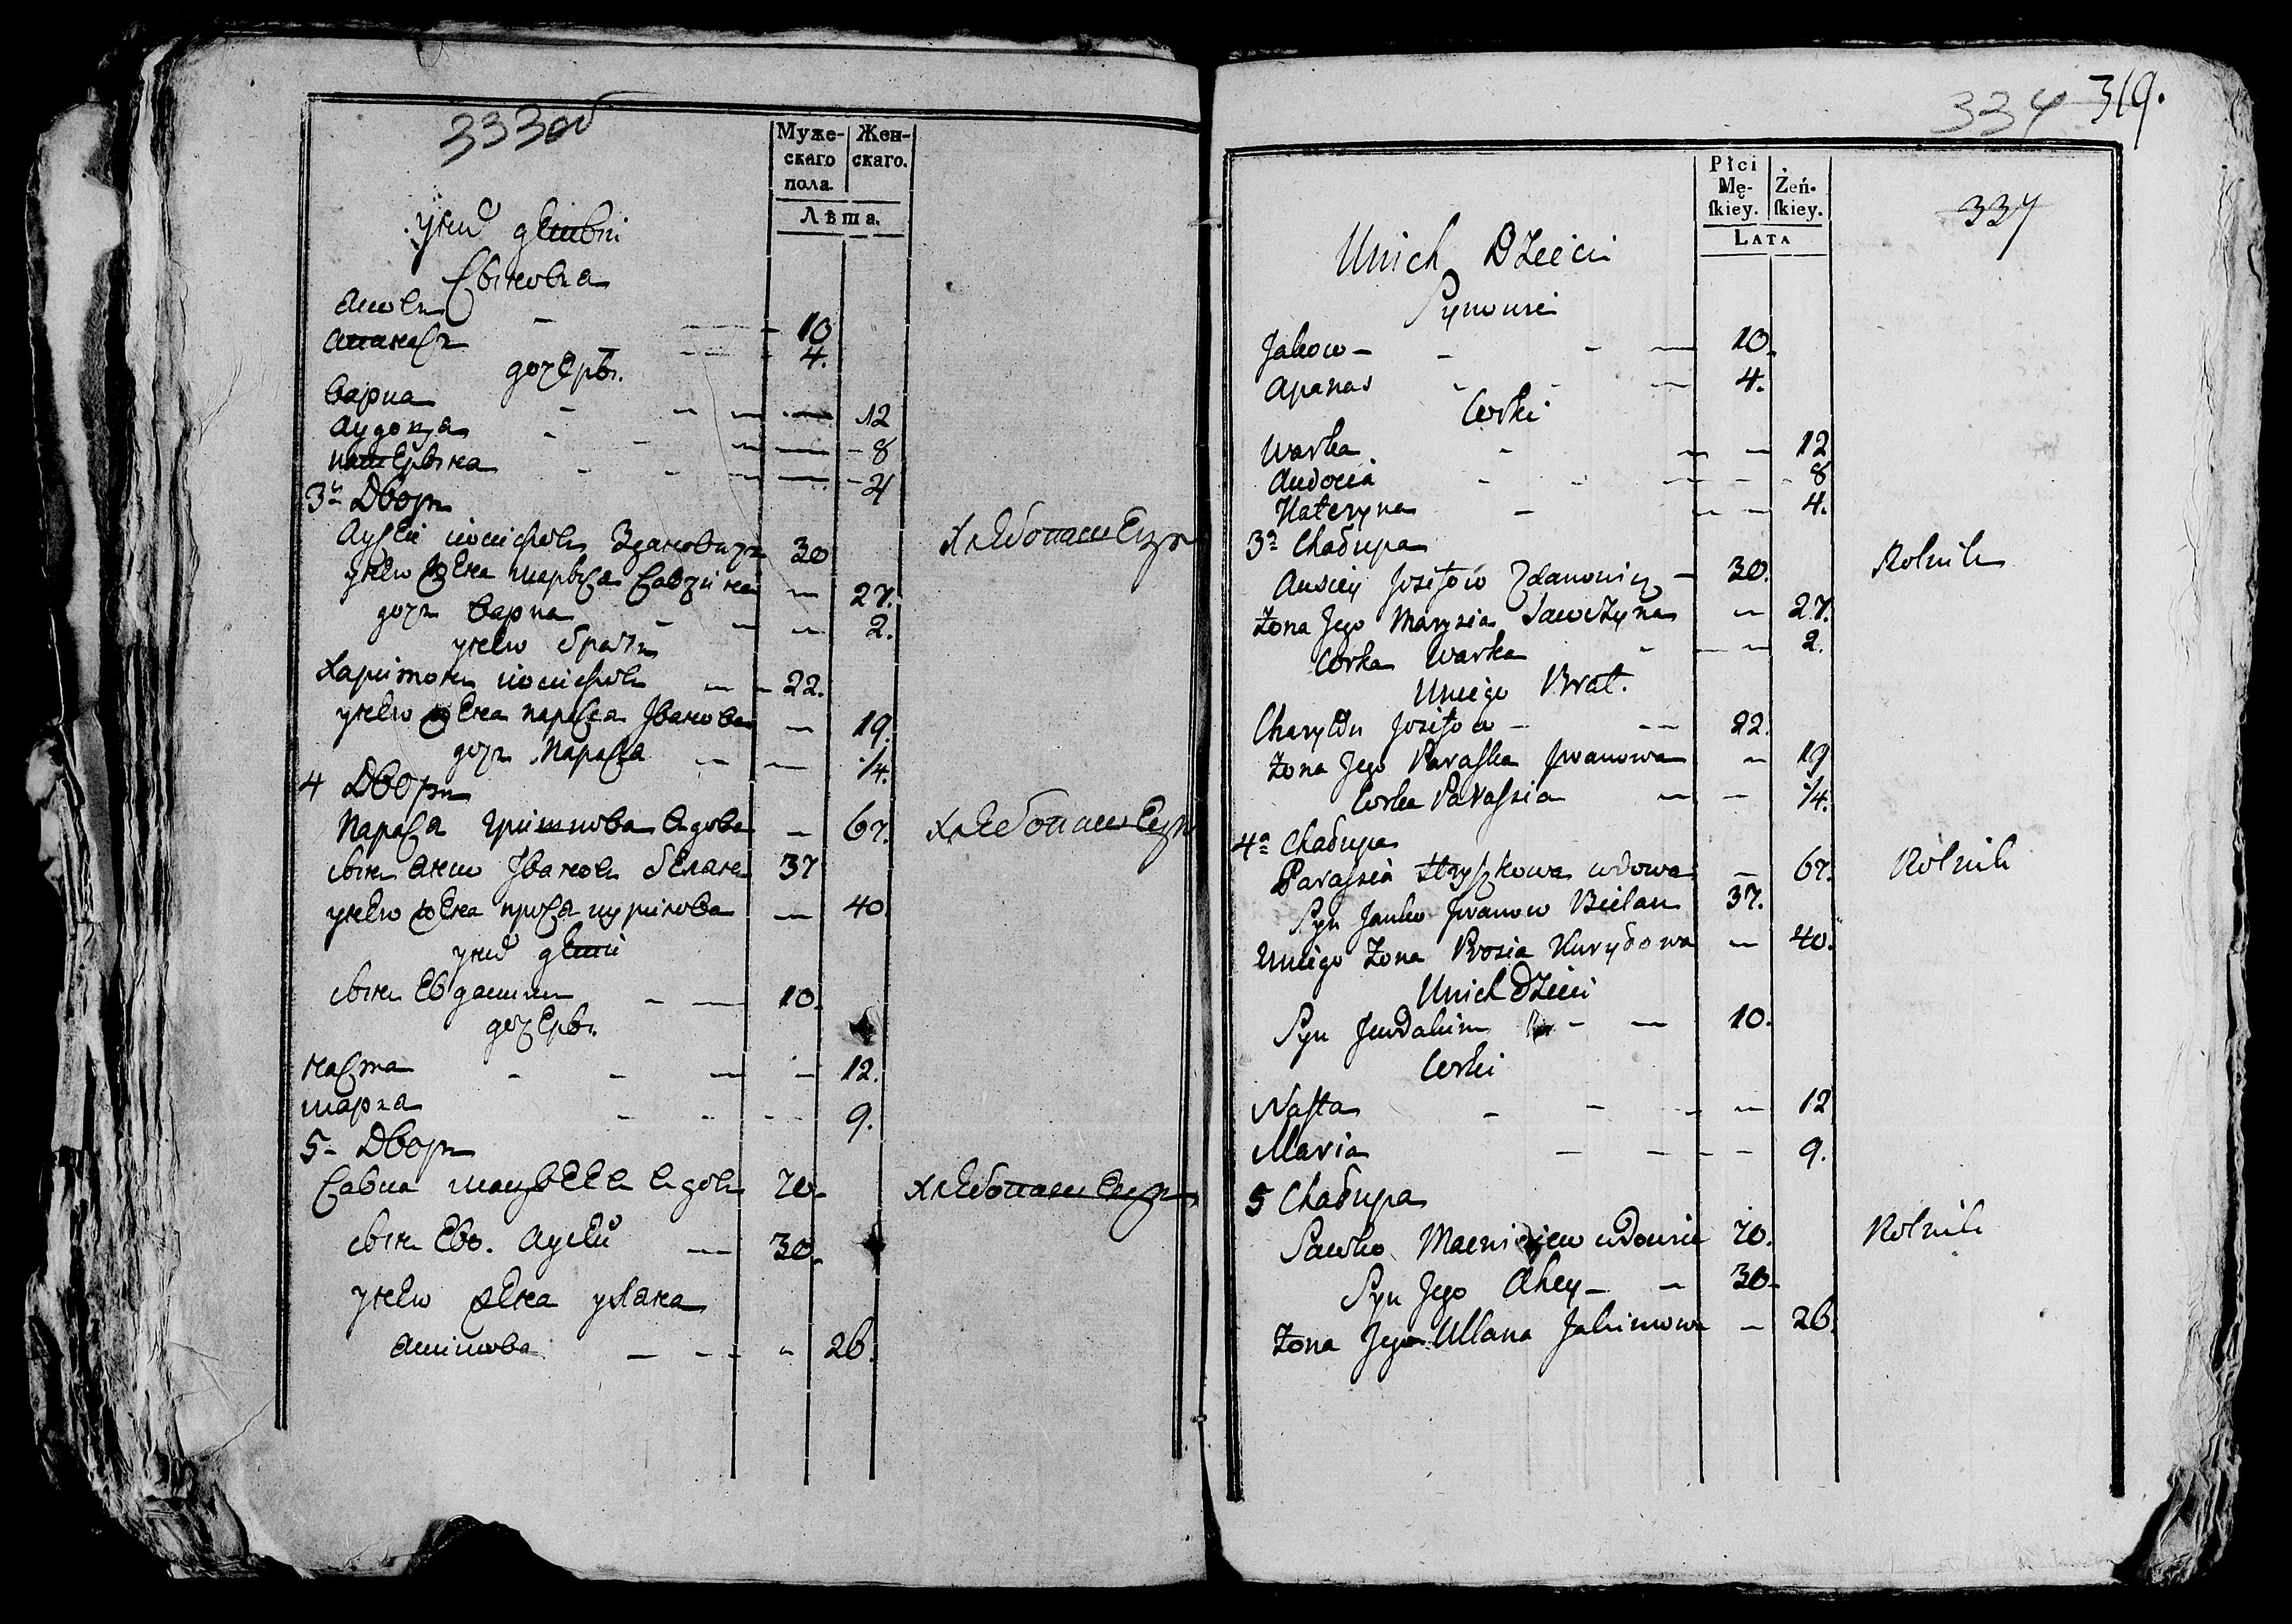 333об
Муже- Жен-
скаго скаго.
пола.
Лѣта.
у нихъ дети
Сыновья
Яковъ - - 10
Апанасъ - - 4.
дочери
Варка - - 12
Аудоця - - 8
Катерына - - 4
3й Дворъ
Аусей иосифовъ Здановичъ 30 хлебопашецъ
у него жена марыся Савчина — 27.
дочь Варка — 2.
у него братъ
Харитонъ иосифовъ — 22.
у него жена параса Иванова — 19.
дочь Параса — — 1/4.
4 Дворъ
Параса Гришкова вдова — 67. хлебопашецъ
сынъ Янко Ивановъ беланъ 37
у него жена проса курилова — 40.
у нихъ дети
сынъ Евдакимъ - — 10.
дочери
наста - - — 12.
марья - - - 9.
5- Дворъ
Савка мацвеевъ вдовъ 70. хлебопашецъ
сынъ Его. Аусей — 30.
у него жена уляна
Акимова — - - 26.
334 319.
334
Płci
Mę- Żeń-
ſkiey. ſkiey.
LATA
Unich Dzieci
Synowie
Jakow - - - — 10.
Apanas - - — 4.
Corki
Warka - — — 12
Audocia - - - 8
Kateryna - — — 4.
3a Chałupa
Ausiey Jozifow Zdanowicz — 30. Rolnik
Żona Jego Marysia Sawczyna — 27.
Corka Warka - — — 2.
Uniego Brat.
Charyton Jozifow - — 22.
Żona Jego Paraska Jwanowa — 19
Corka Parassia — — 1/4.
4a Chałupa
Parassia Hryszkowa wdowa — 67. Rolnik
Syn Janko Jwanow Bielan 37.
Uniego Żona Prosia Kuryłowa — 40.
Unich Dzieci
Syn Jewdakim - — 10.
Corki
Nasta - - - — 12
Maria — - - - 9.
5 Chałupa
Sawko Macwiejew wdowiec 70. Rolnik
Syn Jego Ahey - — 30.
Żona Jego Ullana Jakimowa — 26.